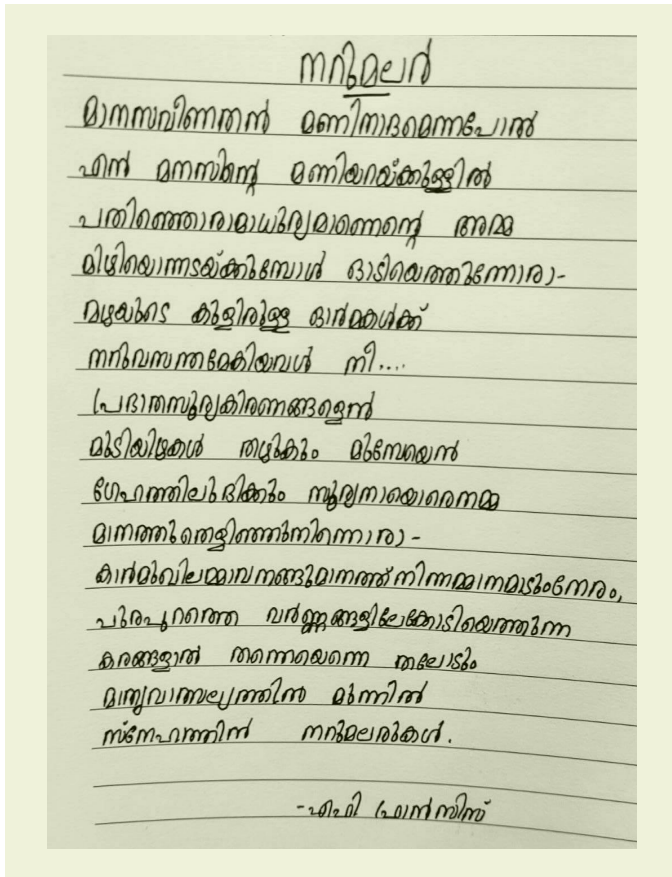 നറുമലർ
മാനസവീണതൻ മണിനാദമെന്നപോൽ
എൻ മനസിന്റെ മണിയറയ്ക്കുള്ളിൽ
പതിഞ്ഞൊരാമാധുര്യമാണെന്റെ അമ്മ
മിഴിയൊന്നടയ്ക്കുമ്പോൾ ഓടിയെത്തുന്നോരാ-
മഴയുടെ കുളിരുള്ള ഓർമകൾക്ക്
നറുവസന്തമേകിയവൾ നീ....
പ്രഭാതസൂര്യകിരണങ്ങളെൻ
മുടിയിഴകൾ തഴുകും മുമ്പേയെൻ
ഗേഹത്തിലുദിക്കും സൂര്യനായൊരെന്നമ്മ
മാനത്തുതെളിഞ്ഞുനിന്നൊരാ-
കാർമുഖിലമ്മാവനങ്ങുമാനത്ത് നിന്നമ്മാനമാടുംനേരം,
പുരപുറത്തെ വർണ്ണങ്ങളിലേക്കോടിയെത്തുന്ന
കരങ്ങളാൽ തന്നെയെന്നെ തലോടും
മാതൃവാത്സല്യത്തിൻ മുന്നിൽ
സ്നേഹത്തിൻ നറുമലരുകൾ.
-എഫി ഫ്രാൻസിസ്